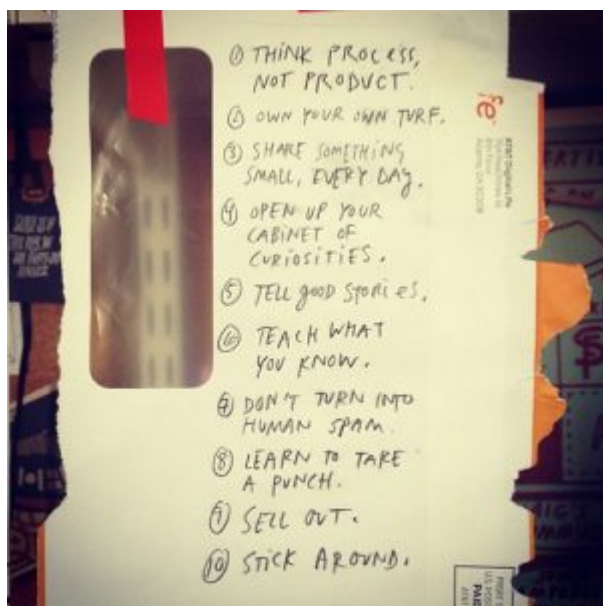 ① THINK PROCESS,
NOT PRODUCT.
② OWN YOUR OWN TURF.
③ SHARE SOMETHING
SMALL, EVERY DAY.
④ OPEN UP YOUR
CABINET OF
CURIOSITIES.
⑤ TELL gOOD STORIES.
⑥ TEACH WHAT
YOU KNOW.
⑦ DON'T TURN INTO
HUMAN SPAM.
⑧ LEARN TO TAKE
A PUNCH.
⑨ SELL OUT.
⑩ STICK AROUND.
fe
AT&T Digital Life
Atlanta, GA
US POS
PAI
AT&T